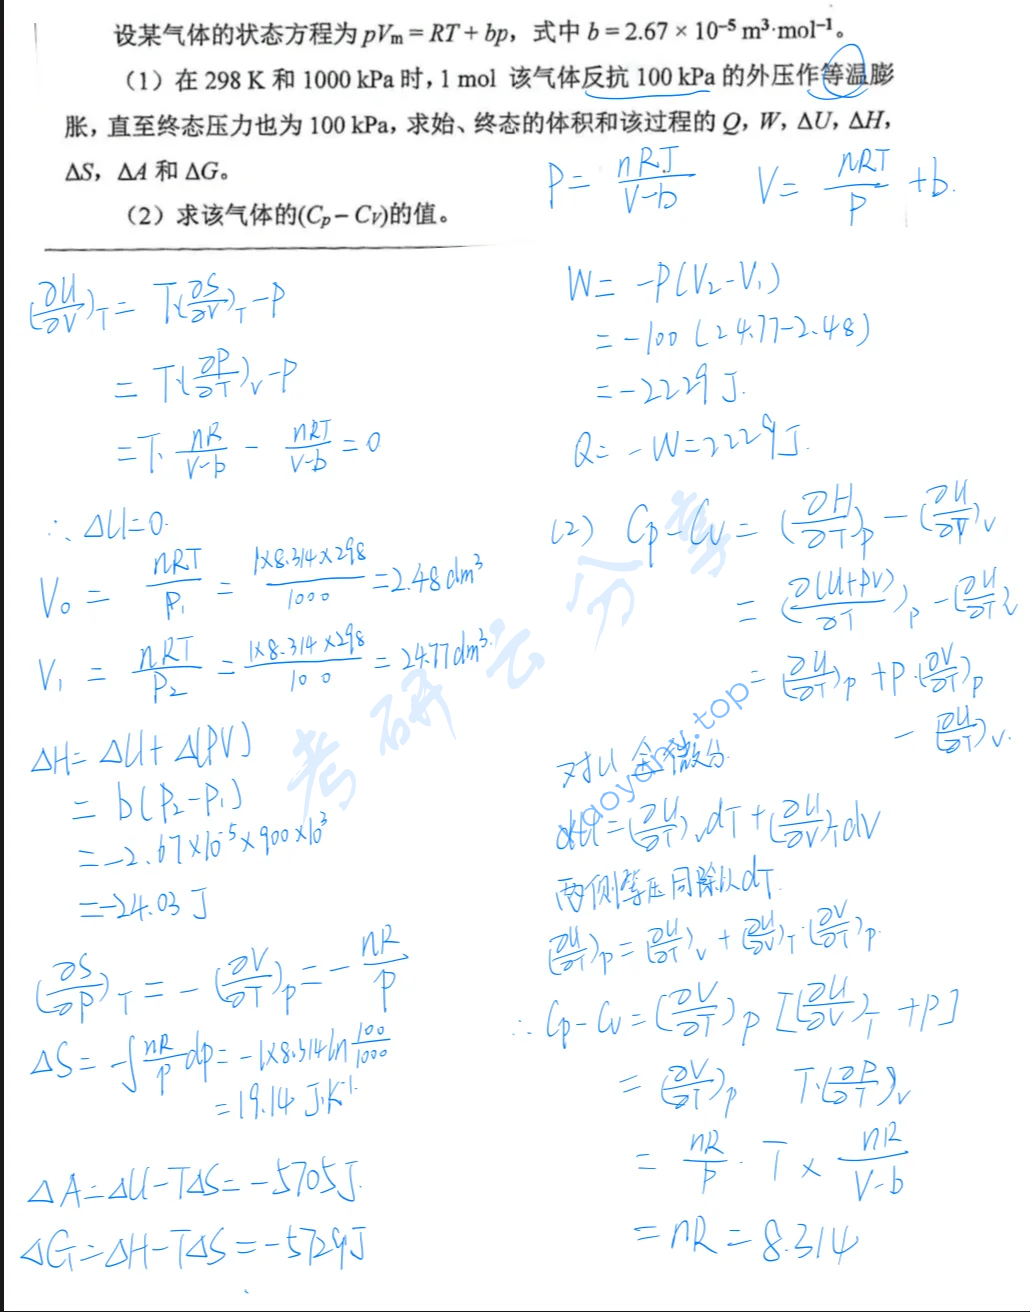 设某气体的状态方程为 pVm = RT + bp，式中 b = 2.67 × 10⁻⁵ m³·mol⁻¹。
（1）在 298 K 和 1000 kPa 时，1 mol 该气体反抗 100 kPa 的外压作等温膨
胀，直至终态压力也为 100 kPa，求始、终态的体积和该过程的 Q，W，ΔU，ΔH，
ΔS，ΔA 和 ΔG。
（2）求该气体的(Cp – CV)的值。
P = nRT/(V-b)  V = nRT/P + b.
(∂U/∂V)T = T·(∂S/∂V)T - P
= T·(∂P/∂T)V - P
= T· nR/(V-b) - nRT/(V-b) = 0
∴ ΔU = 0.
V₀ = nRT/P₁ = 1×8.314×298/1000 = 2.48 dm³
V₁ = nRT/P₂ = 1×8.314×298/100 = 24.77 dm³.
ΔH = ΔU + Δ(PV)
= b(P₂-P₁)
= -2.67×10⁻⁵×900×10³
= -24.03 J
(∂S/∂P)T = -(∂V/∂T)P = - nR/P
ΔS = -∫ nR/P dp = -1×8.314 ln 100/1000
= 19.14 J·K⁻¹.
ΔA = ΔU - TΔS = -5705 J.
ΔG = ΔH - TΔS = -5729 J
W = -P(V₂-V₁)
= -100 (24.77-2.48)
= -2229 J.
Q = -W = 2229 J.
(2) Cp - Cv = (∂H/∂T)P - (∂U/∂T)V
= (∂(U+PV)/∂T)P - (∂U/∂T)V
= (∂U/∂T)P + P·(∂V/∂T)P
- (∂U/∂T)V.
对U全微分.
dU = (∂U/∂T)V dT + (∂U/∂V)T dV
两侧等压同除以dT.
(∂U/∂T)P = (∂U/∂T)V + (∂U/∂V)T·(∂V/∂T)P.
∴ Cp - Cv = (∂V/∂T)P [(∂U/∂V)T + P]
= (∂V/∂T)P T·(∂P/∂T)V
= nR/P · T × nR/(V-b)
= nR = 8.314
考研云分享
kaoyany.top